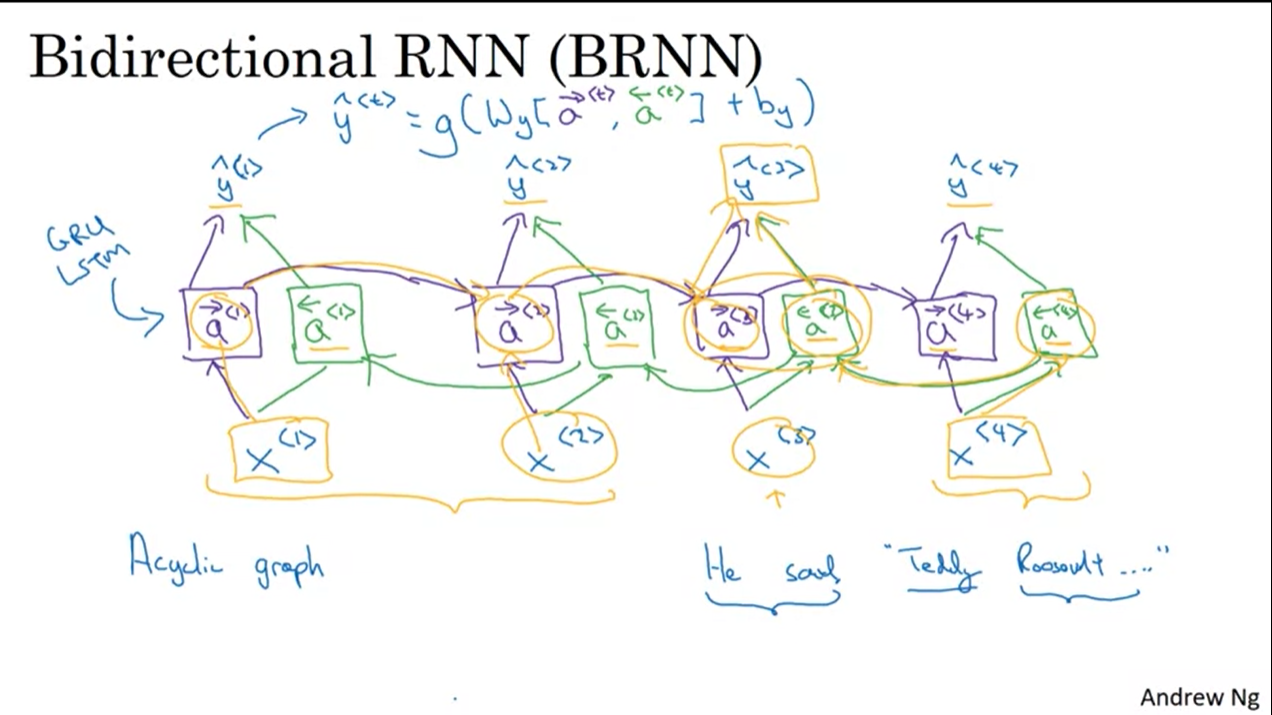 Bidirectional RNN (BRNN)
ŷ<t> = g(Wy[a→<t>, a←<t>] + by)
ŷ<1> ŷ<2> ŷ<3> ŷ<4>
GRU
LSTM
a→<1> a←<1> a→<2> a←<2> a→<3> a←<3> a→<4> a←<4>
x<1> x<2> x<3> x<4>
Acyclic graph He said, "Teddy Roosevelt ...."
Andrew Ng